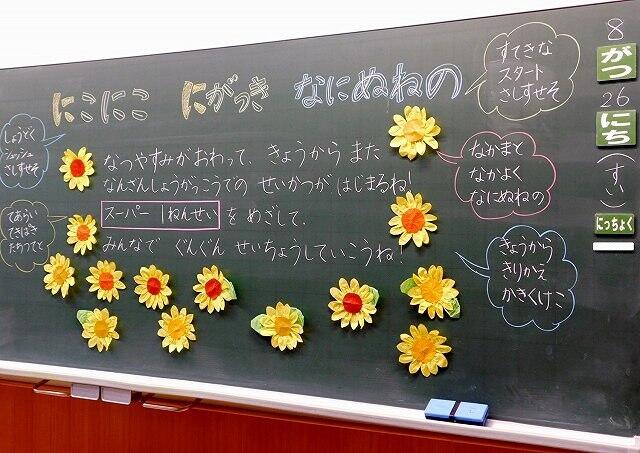 にこにこ にがっき なにぬねの
なつやすみがおわって、きょうから また
なんざんしょうがっこうでの せいかつが はじまるね!
スーパー 1ねんせい をめざして、
みんなで ぐんぐん せいちょうしていこうね!
しょうどく
シュッシュ
さしすせそ
てあらい
てきぱき
たちつてと
すてきな
スタート
さしすせそ
なかまと
なかよく
なにぬねの
きょうから
きりかえ
かきくけこ
8
がつ
26
にち
(すい)
にっちょく